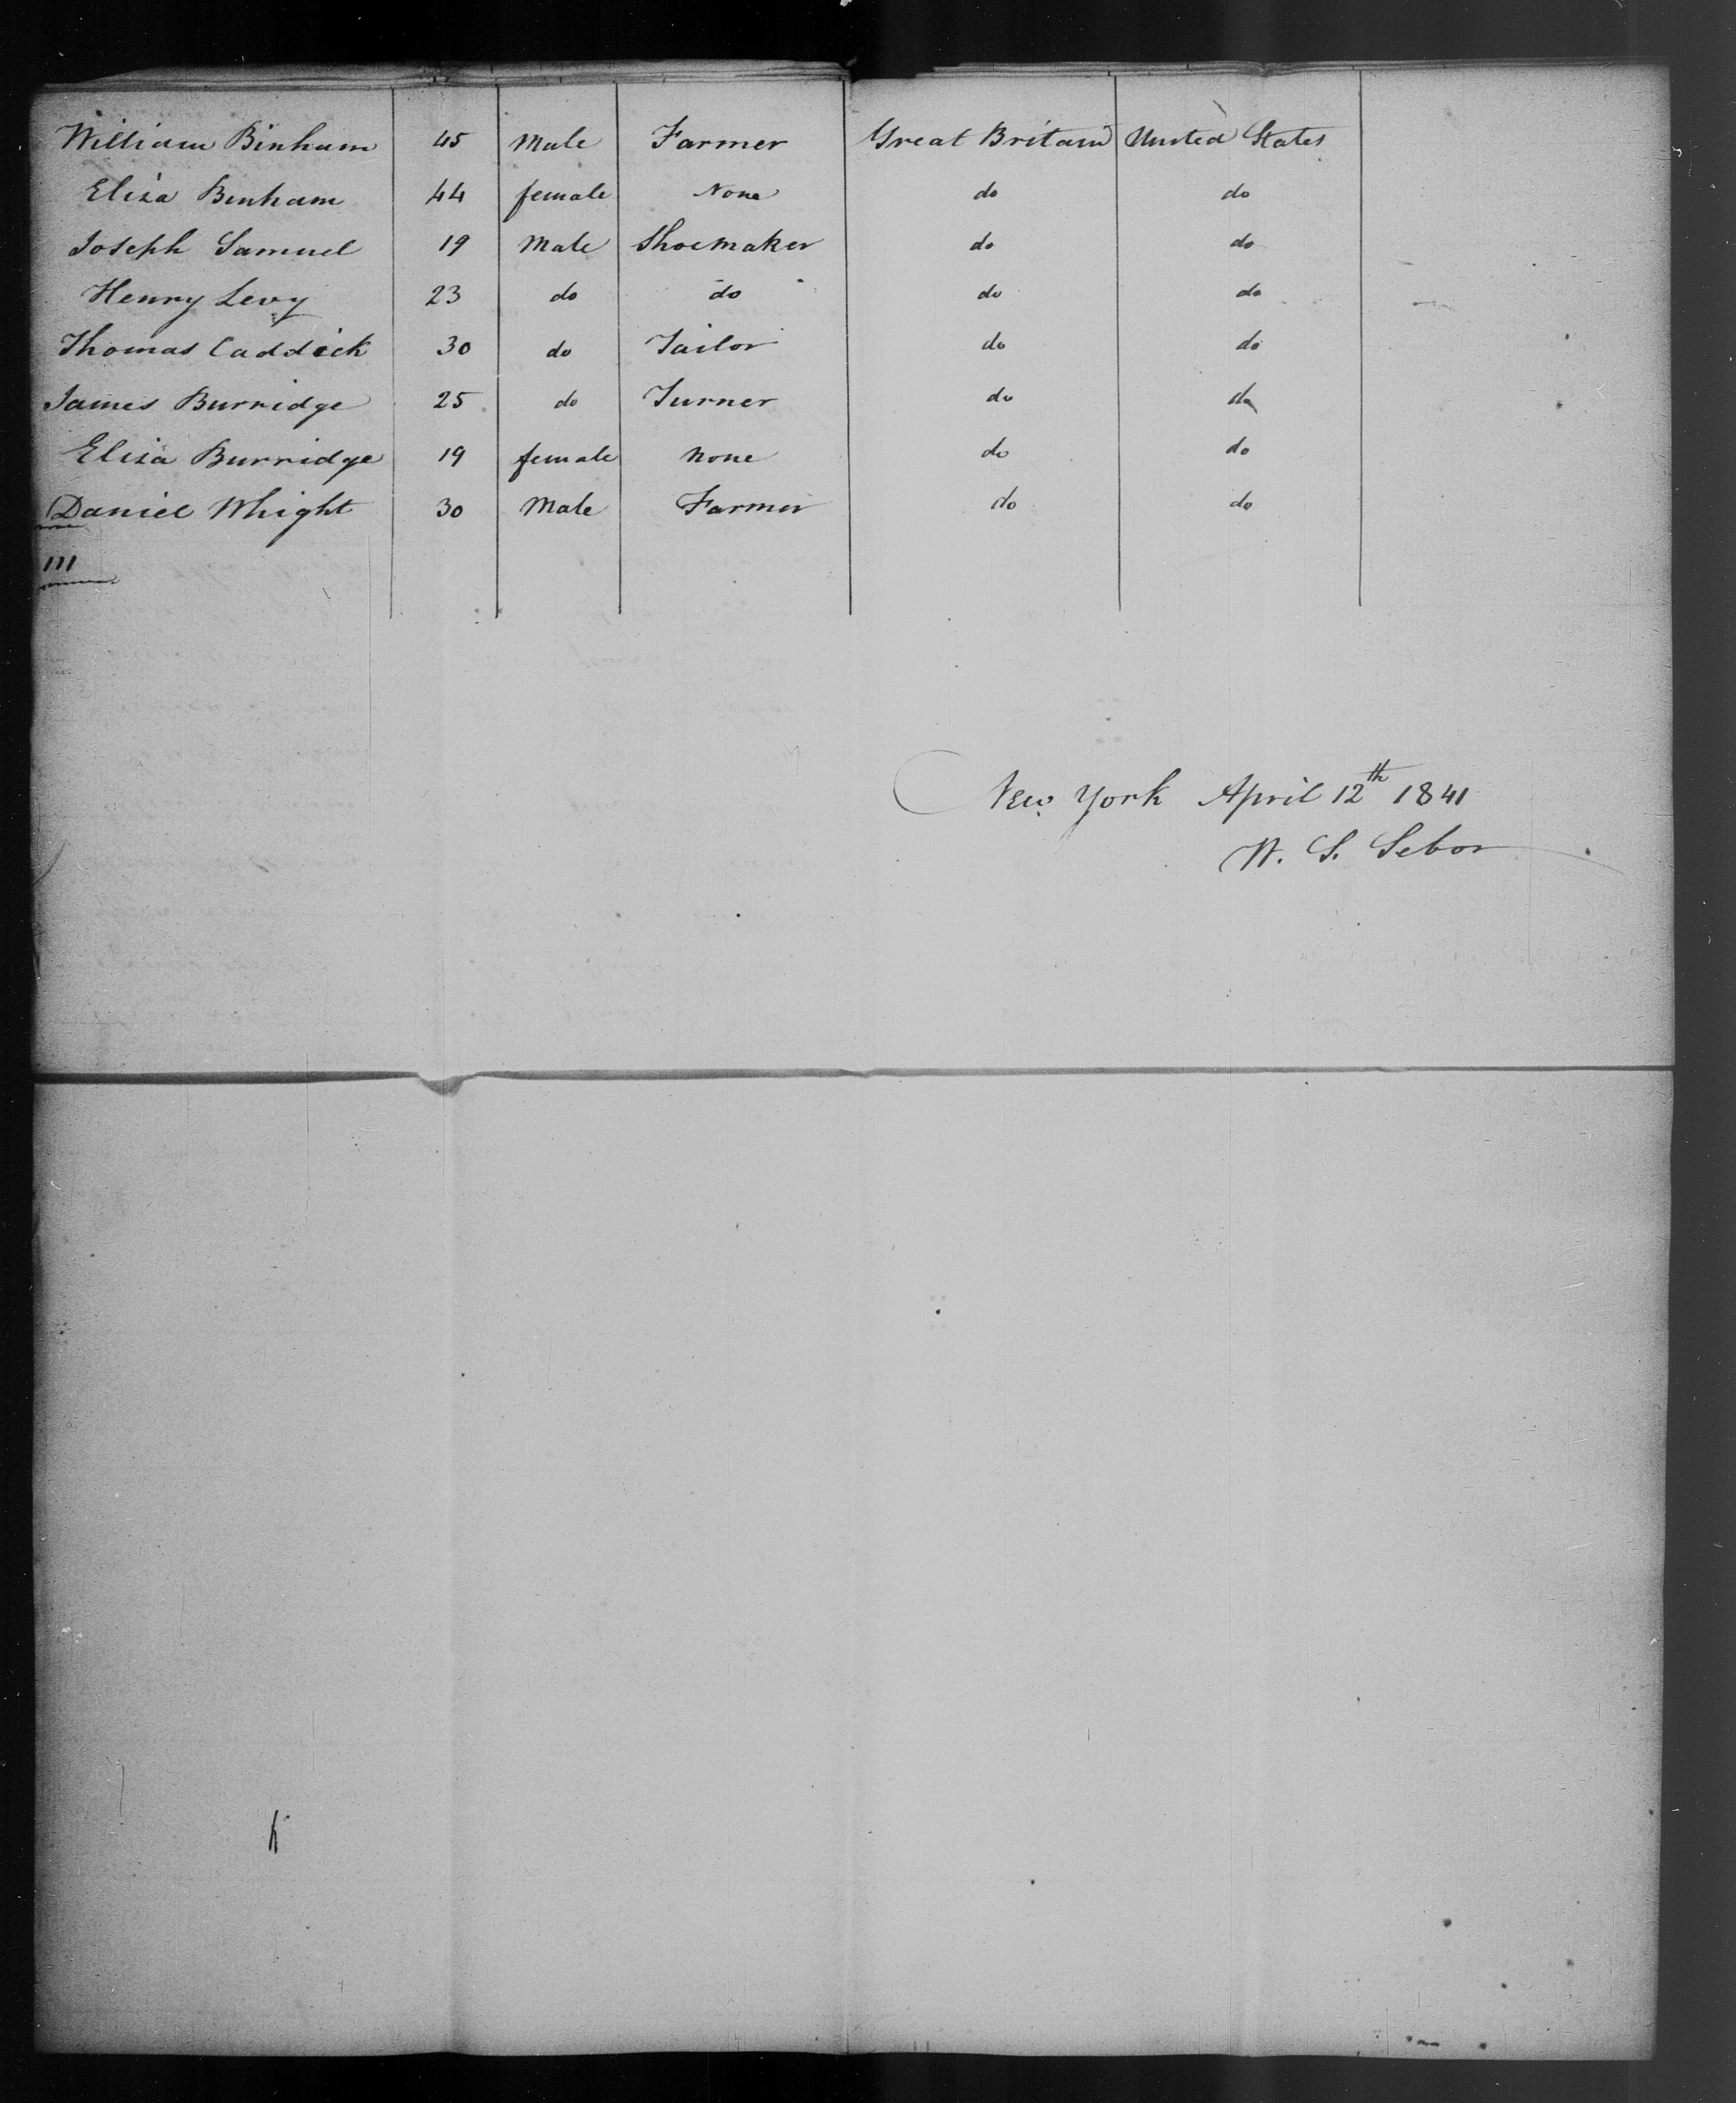 William Binham 45 Male Farmer Great Britain United States
Eliza Binham 44 female None do do
Joseph Samuel 19 Male Shoemaker do do
Henry Levy 23 do do do do
Thomas Caddick 30 do Tailor do do
James Burridge 25 do Turner do do
Eliza Burridge 19 female None do do
Daniel Whight 30 Male Farmer do do
111
New York April 12th 1841
W. S. Sebor